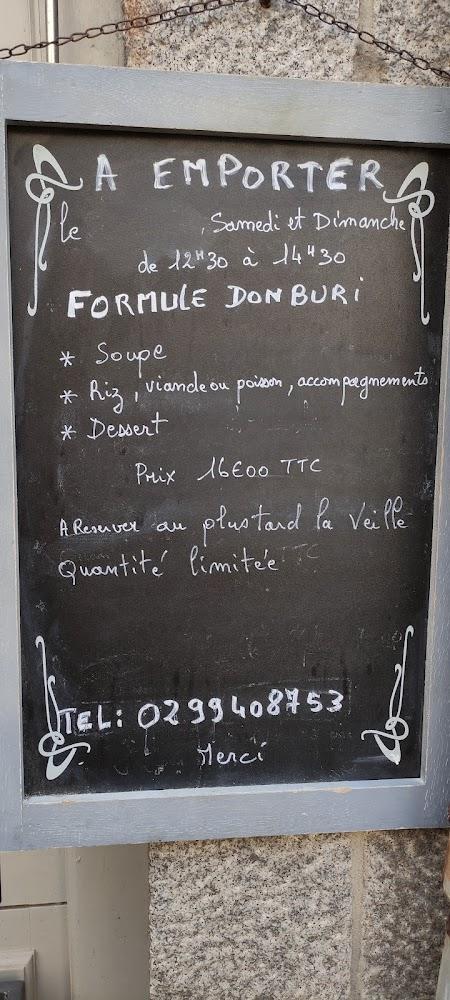 A EMPORTER
le , Samedi et Dimanche
de 12H30 à 14H30
FORMULE DONBURI
* Soupe
* Riz, viande ou poisson, accompagnements
* Dessert
Prix 16€00 TTC
A Reserver au plus tard la Veille
Quantité limitée
TEL: 0299408753
Merci